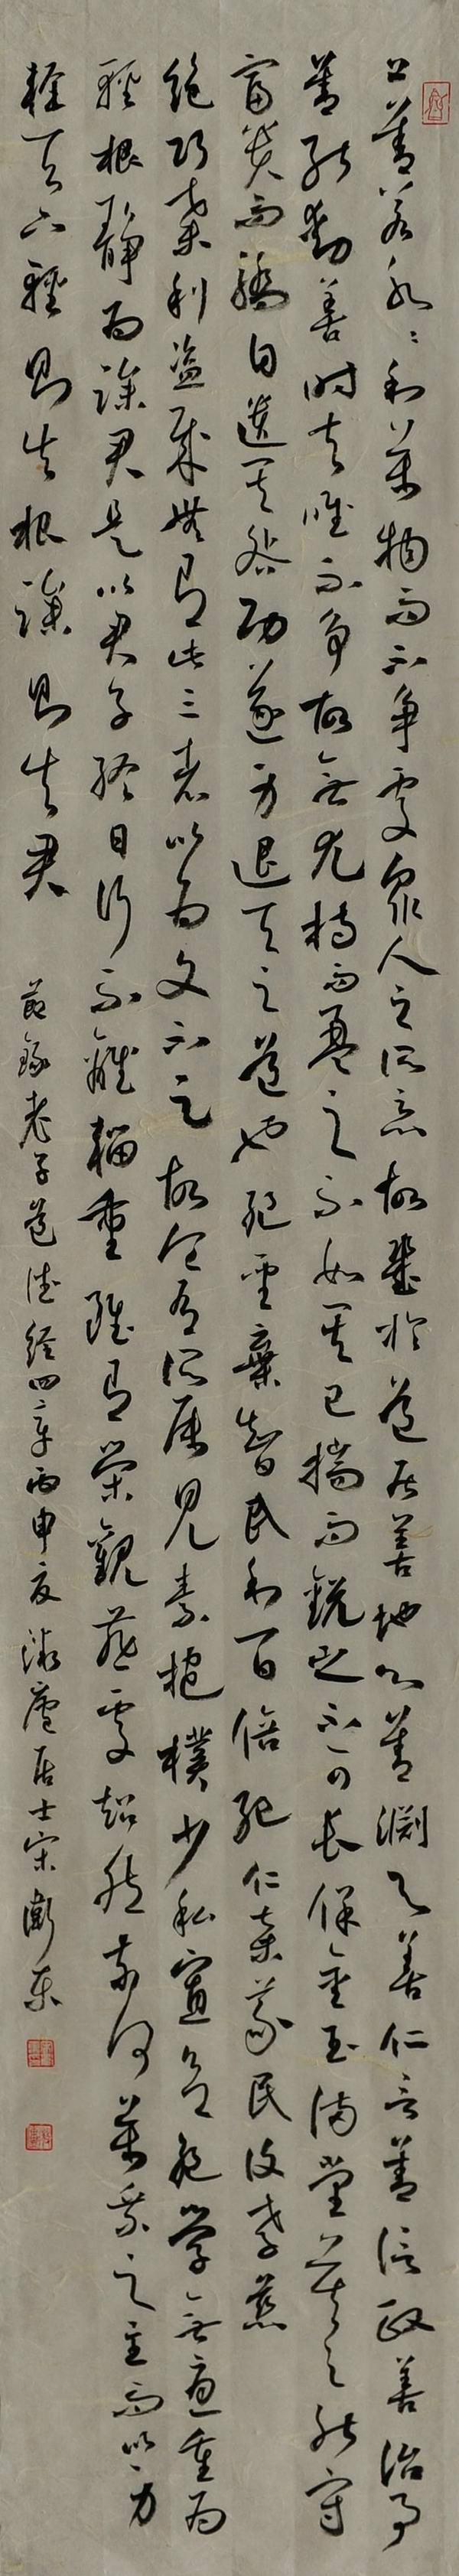 上善若水水利萬物而不爭處眾人之所惡故幾於道居善地心善淵與善仁言善信政善治事
善能動善時夫唯不爭故無尤持而盈之不如其已揣而銳之不可長保金玉滿堂莫之能守
富貴而驕自遺其咎功遂身退天之道也絕聖棄智民利百倍絕仁棄義民復孝慈
絕巧棄利盜賊無有此三者以為文不足故令有所屬見素抱樸少私寡欲絕學無憂重為
輕根靜為躁君是以君子終日行不離輜重雖有榮觀燕處超然奈何萬乘之主而以身
輕天下輕則失根躁則失君
節錄老子道德經四章丙申夏 廬居士宋衛東